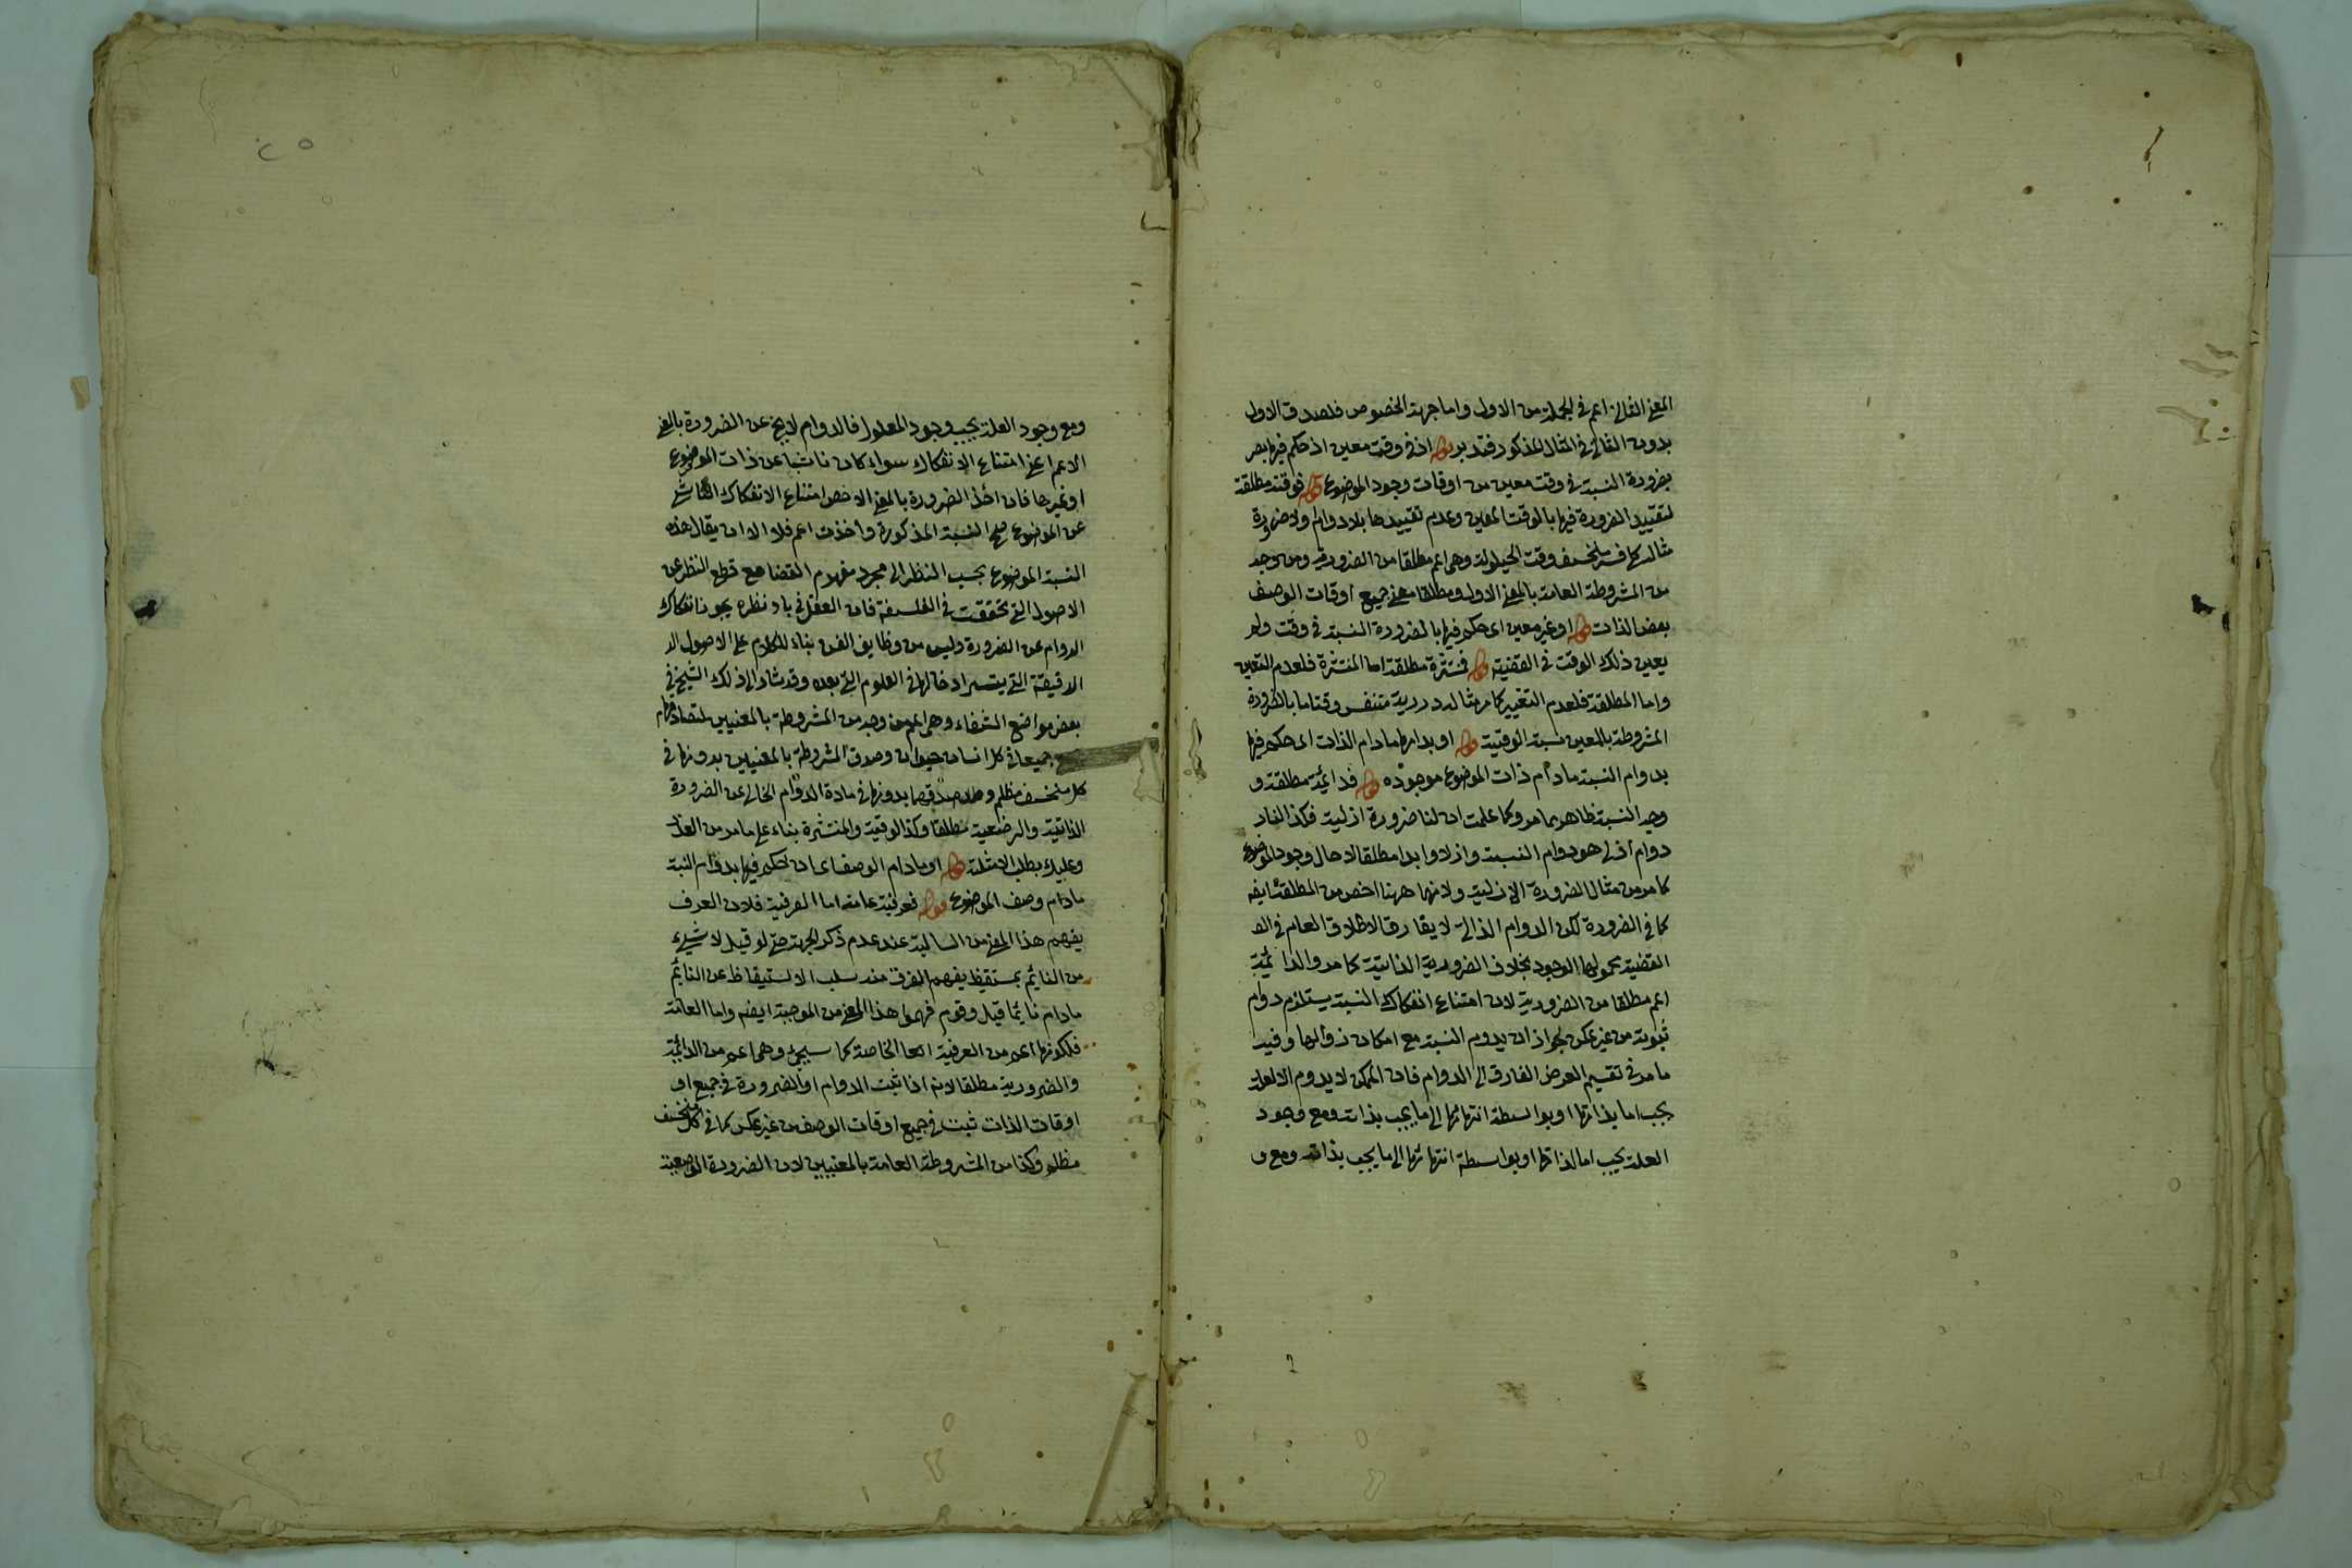 المعنى الثانى اعم فى الجملة من الاول واما جهة الخصوص فلصدق الاول
بدون الثانى فى المثال المذكور فتدبر قوله او فى وقت معين اذ حكم فيها بصر
بضرورة النسبة فى وقت معين من اوقات وجود الموضوع قوله فوقتية مطلقة
لتقييد الضرورة فيها بالوقت المعين وعدم تقييدها بلادوام ولاضرورة
مثاله كل قمر منخسف وقت الحيلولة وهى اعم مطلقا من الضرورية ومن وجه
من المشروطة العامة بالمعنى الاول ومطلقا معنى جميع اوقات الوصف
بعض الذات قوله او غير معين اى حكم فيها بالضرورة النسبة فى وقت ولم
يعين ذلك الوقت فى القضية قوله فمنتشرة مطلقة اما المنتشرة فلعدم التعين
واما المطلقة فلعدم التغيير كما مر مثاله متنفس وقتا ما بالضرورة
المشروطة بالمعين نسبة الوقتية قوله او بدوامها مادام الذات اى حكم فيها
بدوام النسبة مادام ذات الموضوع موجوده قوله فدائمة مطلقة و
وجه النسبة ظاهر مما مر وكما علمت ان لنا ضرورة ازلية فكذا لنا د
دوام ازلى هو دوام النسبة وازلا وابدا مطلقا لا حال وجود الموضوع
كما مر من مثال الضرورة الازلية ولانها ههنا اخص من المطلقة ايضه
كما فى الضرورة لكن الدوام الذاتى لا يفارق الاطلاق العام فى الص
القضية محمولها الوجود بخلاف الضرورية الذاتية كما مر والدائمة
اعم مطلقا من الضرورية لان امتناع انفكاك النسبة يستلزم دوام
ثبوته من غير عكس لجواز ان يدوم النسبة مع امكان زوالها وفيه
ما مر فى تقسيم العرض الفارق الى الدوام فان الممكن لا يدوم الا لعلة
يجب اما بذاتها او بواسطة انتهائها الى ما يجب بذاته ومع وجود
العلة يجب اما لذاتها او بواسطة انتهائها الى ما يجب بذاته ومع و
ومع وجود العلة يجب وجود المعلول فالدوام لايخ عن الضرورة بالمعنى
الاعم اعنى امتناع الانفكاك سواء كان ناشيا عن ذات الموضوع
او غيرها فان اخذ الضرورة بالمعنى الاخص امتناع الانفكاك الناشئ
عن الموضوع صح النسبة المذكورة واخذت اعم فلا الا ان يقال هذه
النسبة الموضوع بحسب النظر الى مجرد مفهوم القضايا مع قطع النظر عن
الاصول التى تحققت فى الفلسفة فان العقل فى باد نظره يجوز انفكاك
الدوام عن الضرورة وليس من وظايف الفن بناء الكلام على الاصول الد
الدقيقة التى يتيسر ادخالها فى العلوم التى بعده وقد شار الى ذلك الشيخ فى
بعض مواضع الشفاء وهى اعم من وجه من المشروطة بالمعنيين لتصادقها
جميعا فى كل انسان حيوان وصدق المشروطة بالمعنيين بدونها فى
كل منخسف مظلم وصدقهما بدونها فى مادة الدوام الخالى عن الضرورة
الذاتية والوصفية مطلقا وكذا الوقتية والمنتشرة بناء على ما مر من العذر
وعليك بطلب الامثلة قوله او مادام الوصف اى ان حكم فيها بدوام النسبة
مادام وصف الموضوع قوله فعرفية عامة اما العرفية فلان العرف
يفهم هذا المعنى من السالبة عند عدم ذكر الجهة حتى لو قيل لا شىء
من النايم بمستيقظ يفهم العرف منه سلب الاستيقاظ عن النايم
مادام نائما قيل وقوم فهموا هذا المعنى من الموجبة ايضه واما العامة
فلكونها اعم من العرفية الخاصة كما سيجىء وهى اعم من الدائمة
والضرورية مطلقا لانه اذا ثبت الدوام او الضرورة فى جميع او
اوقات الذات ثبت فى جميع اوقات الوصف من غير عكس كما فى كل منخسف
مظلم وكذا من المشروطة العامة بالمعنيين لان الضرورة الوصفية